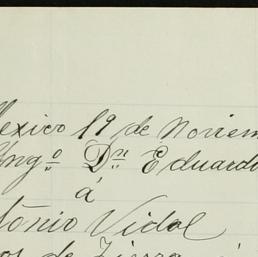 Mexico 19 de Noviem
Yng.º Dn. Eduardo
á
tónio Vidal
os de Tierra